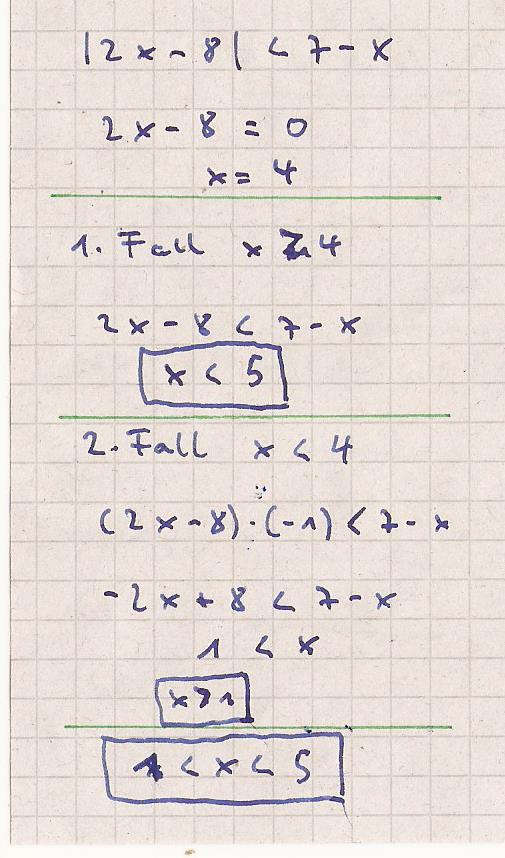 |2x - 8| < 7 - x
2x - 8 = 0
x = 4
1. Fall x ≥ 4
2x - 8 < 7 - x
x < 5
2. Fall x < 4
(2x - 8) · (-1) < 7 - x
-2x + 8 < 7 - x
1 < x
x > 1
1 < x < 5